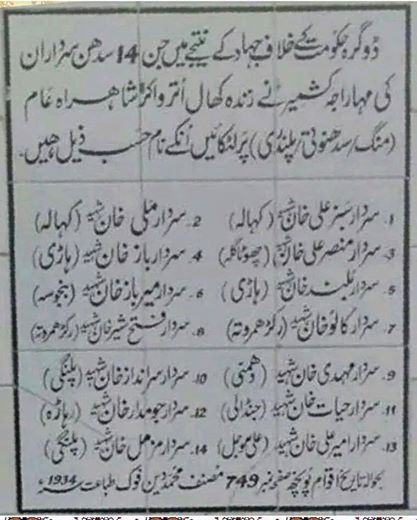 ڈوگرہ حکومت کے خلاف جہاد کے نتیجے میں جن 14 سدھن سرداران
کی مہاراجہ کشمیر نے زندہ کھال اُتروا کر شاہراہ عام
(منگ سدھنوتی/پلندی) پر لٹکائیں اُنکے نام حسب ذیل ھیں۔
1۔ سردار سبز علی خان شہید (کہالہ) 2۔ سردار ملی خان شہید (کہالہ)
3۔ سردار منصر علی خان شہید 4۔ سردار باز خان شہید (ہاڑی)
5۔ سردار بلند خان شہید (ہاڑی) 6۔ سردار میر باز خان شہید (بنجوسہ)
7۔ سردار کالو خان شہید 8۔ سردار فتح شیر خان شہید
9۔ سردار مہدی خان شہید (دھمنی) 10۔ سردار سرانداز خان شہید (پلنگی)
11۔ سردار حیات خان شہید (جنڈالی) 12۔ سردار جومدار خان شہید (رہاڑہ)
13۔ سردار امیر علی خان شہید 14۔ سردار مزمل خان شہید (پلنگی)
بحوالہ تاریخ اقوام پونچھ صفحہ نمبر 749 مصنف محمد دین فوک طباعت سنہ 1934ء